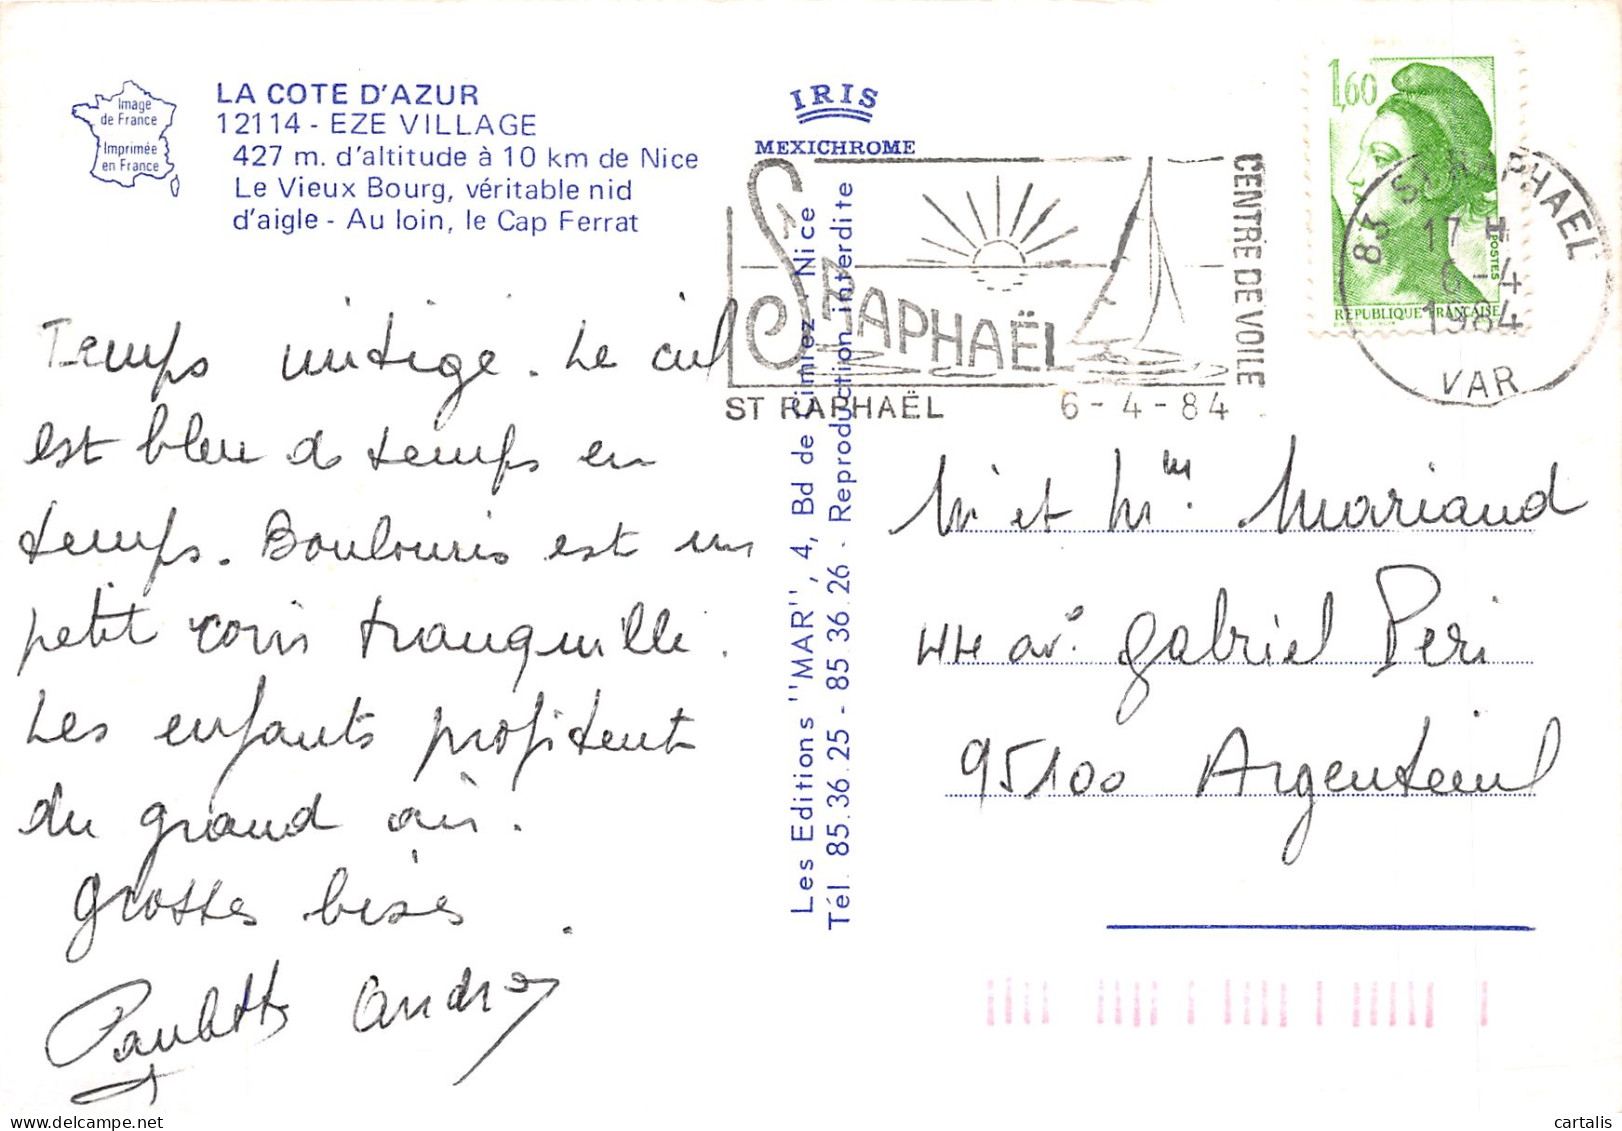 Image
de France
Imprimée
en France
LA COTE D'AZUR
12114 - EZE VILLAGE
427 m. d'altitude à 10 km de Nice
Le Vieux Bourg, véritable nid
d'aigle - Au loin, le Cap Ferrat
Temps mitigé. Le ciel
est bleu de temps en
temps. Boulouris est un
petit coin tranquille.
Les enfants profitent
du grand air.
Grosses bises.
Paulette André
IRIS
MEXICHROME
Les Editions "MAR", 4, Bd de Cimiez - Nice
Tél. 85.36.25 - 85.36.26 - Reproduction interdite
ST RAPHAËL
CENTRE DE VOILE
ST RAPHAËL 6-4-84
1,60
POSTES
REPUBLIQUE FRANÇAISE
83 ST RAPHAEL
17 H
6-4
1984
VAR
Mr et Mme Mariaud
44 ave Gabriel Peri
95100 Argenteuil
cartalis
delcampe.net